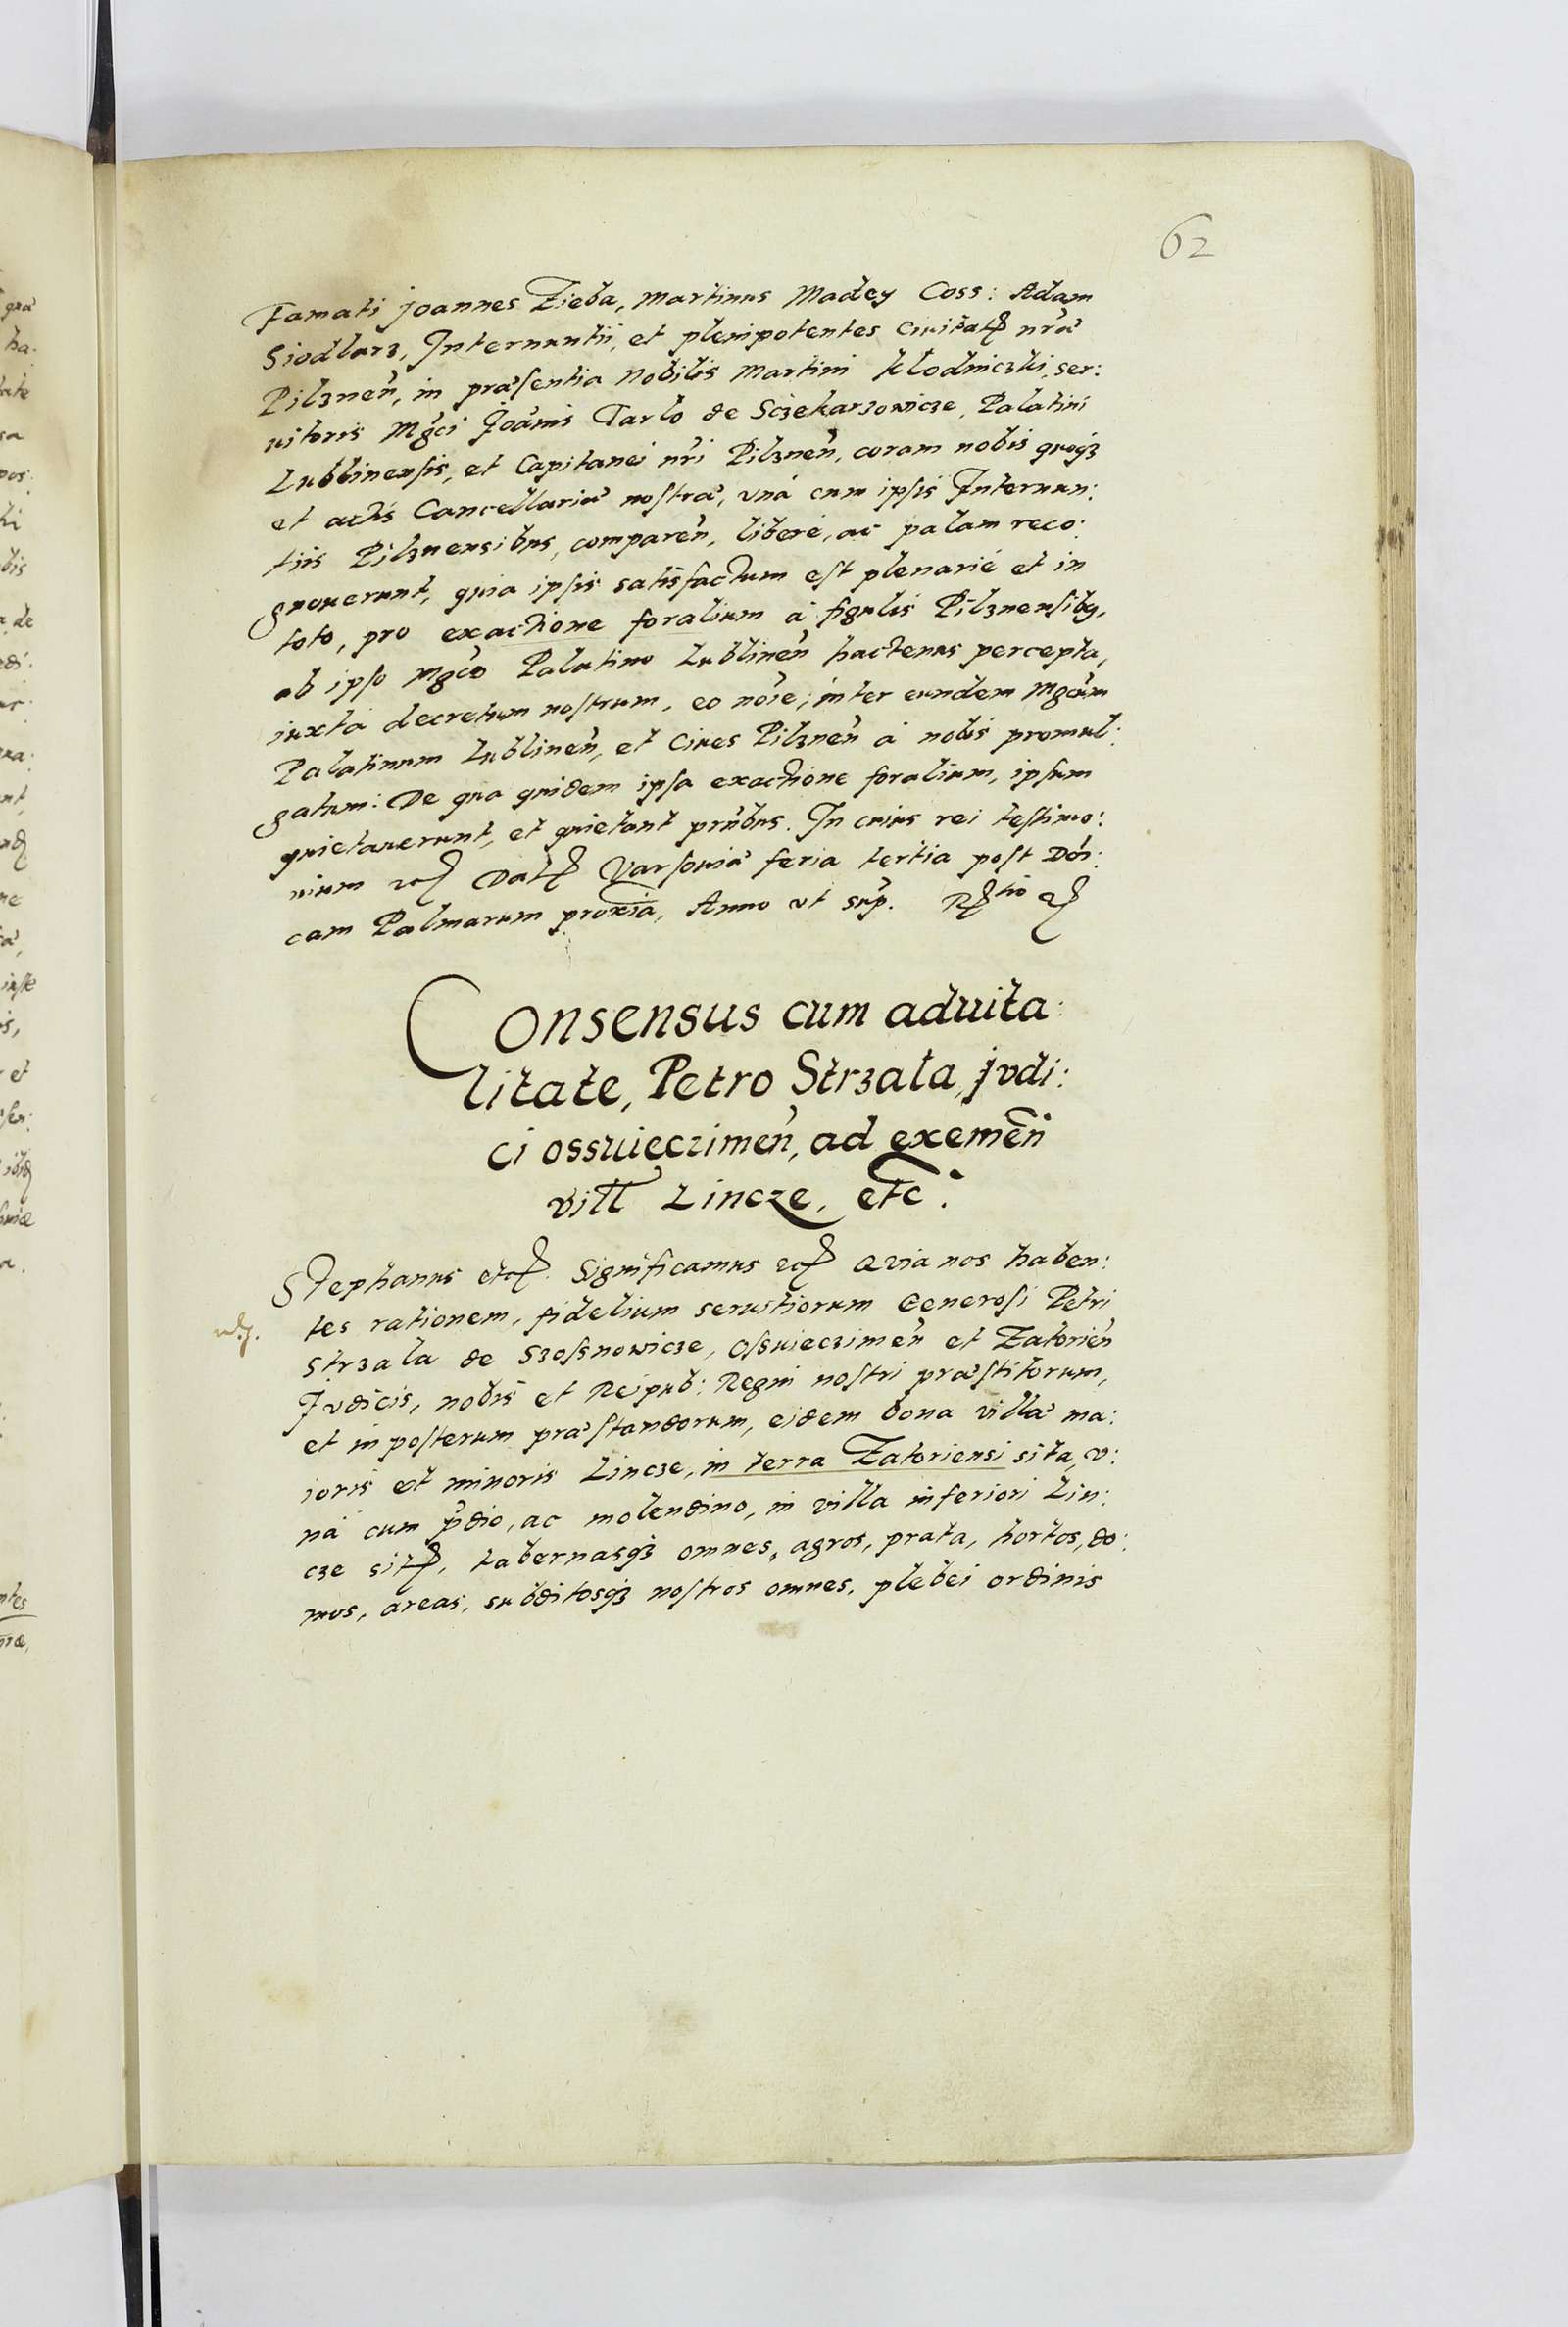 62
Famati Joannes Zieba, Martinus Madey Coss: Adam
Siodlarz, Internuntii, et plenipotentes Ciuitat nrã
Pilznen̄, in præsentia Nobilis Martini Klodniczki, ser:
uitoris Mgci Joãnis Tarlo de Sczekarzowicze, Palatini
Lublinensis, et Capitanei nri Pilznen̄, coram nobis quoqʒ
et actis Cancellariæ nostræ, vná cum ipsis Internun:
tiis Pilznensibus, comparen̄, liberè, ac palam reco:
gnouerunt, quia ipsis satisfactum est plenariè et in
toto, pro exactione foralium à figulis Pilznensibʒ,
ab ipso Mgco Palatino Lublinen̄ hactenus percepta,
iuxta decretum nostrum, eo noĩe, inter eundem Mgcum
Palatinum Lublinen̄, et Ciues Pilznen̄ à nobis promul:
gatum: De qua quidem ipsa exactione foralium, ipsum
quietauerunt, et quietant pr̃ntibus. In cuius rei testimo:
nium etc Dat Varsouiæ feria tertia post Doi:
cam Palmarum proxĩa, Anno vt sup̃. Rtio etc
Consensus cum aduita:
litate, Petro Strzala, Judi:
ci ossuieczimen̄, ad exemen̄
vill Lincze, etc.
Stephanus etc. Significamus etc Quia nos haben:
tes rationem, fidelium seruitiorum Generosi Petri
Strzala de Szosnowicze, Ossuieczimen̄ et Zatorien̄
Judicis, nobis et Reipub: Regni nostri præstitorum,
et in posterum præstandorum, eidem bona villæ ma:
ioris et minoris Lincze, in terra Zatoriensi sita, v:
ná cum p̃dio, ac molendino, in villa inferiori Lin:
cze sit, tabernasqʒ omnes, agros, prata, hortos, do:
mos, areas, subditosqʒ nostros omnes, plebei ordinis